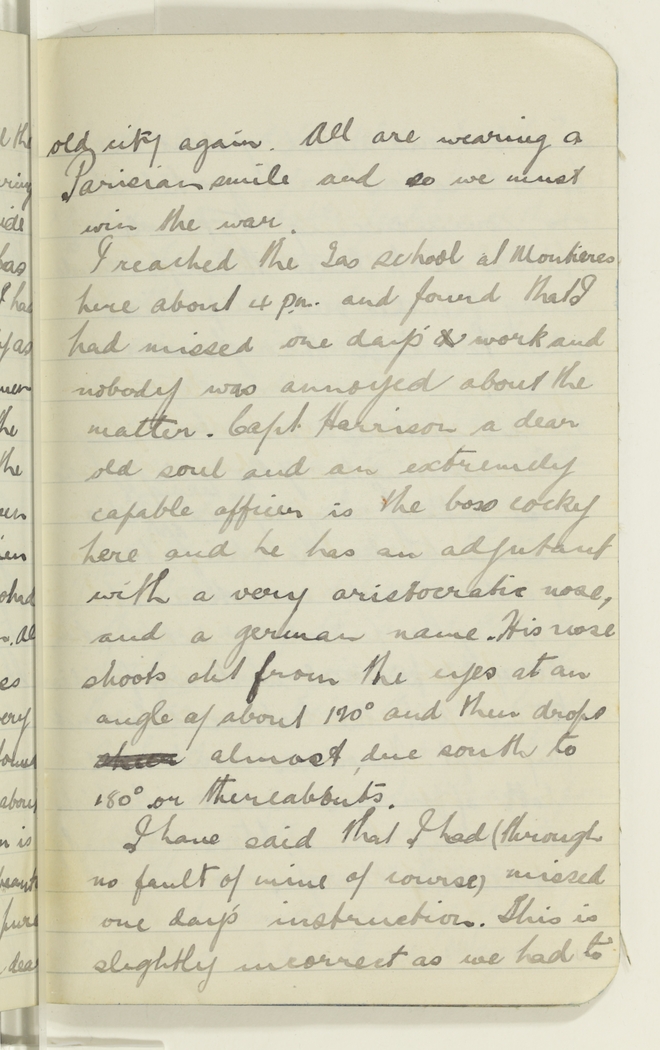 old city again. All are wearing a
Parisian smile and so we must
win the war.
I reached the Gas school at Montieres
here about 4 p.m. and found that I
had missed one day's work and
nobody was annoyed about the
matter. Capt Harrison a dear
old soul and an extremely
capable officer is the boss cocky
here and he has an adjutant
with a very aristocratic nose,
and a german name. His nose
shoots out from the eyes at an
angle of about 120° and then drops
almost due south to
180° or thereabouts.
I have said that I had (through
no fault of mine of course) missed
one day's instruction. This is
slightly incorrect as we had to